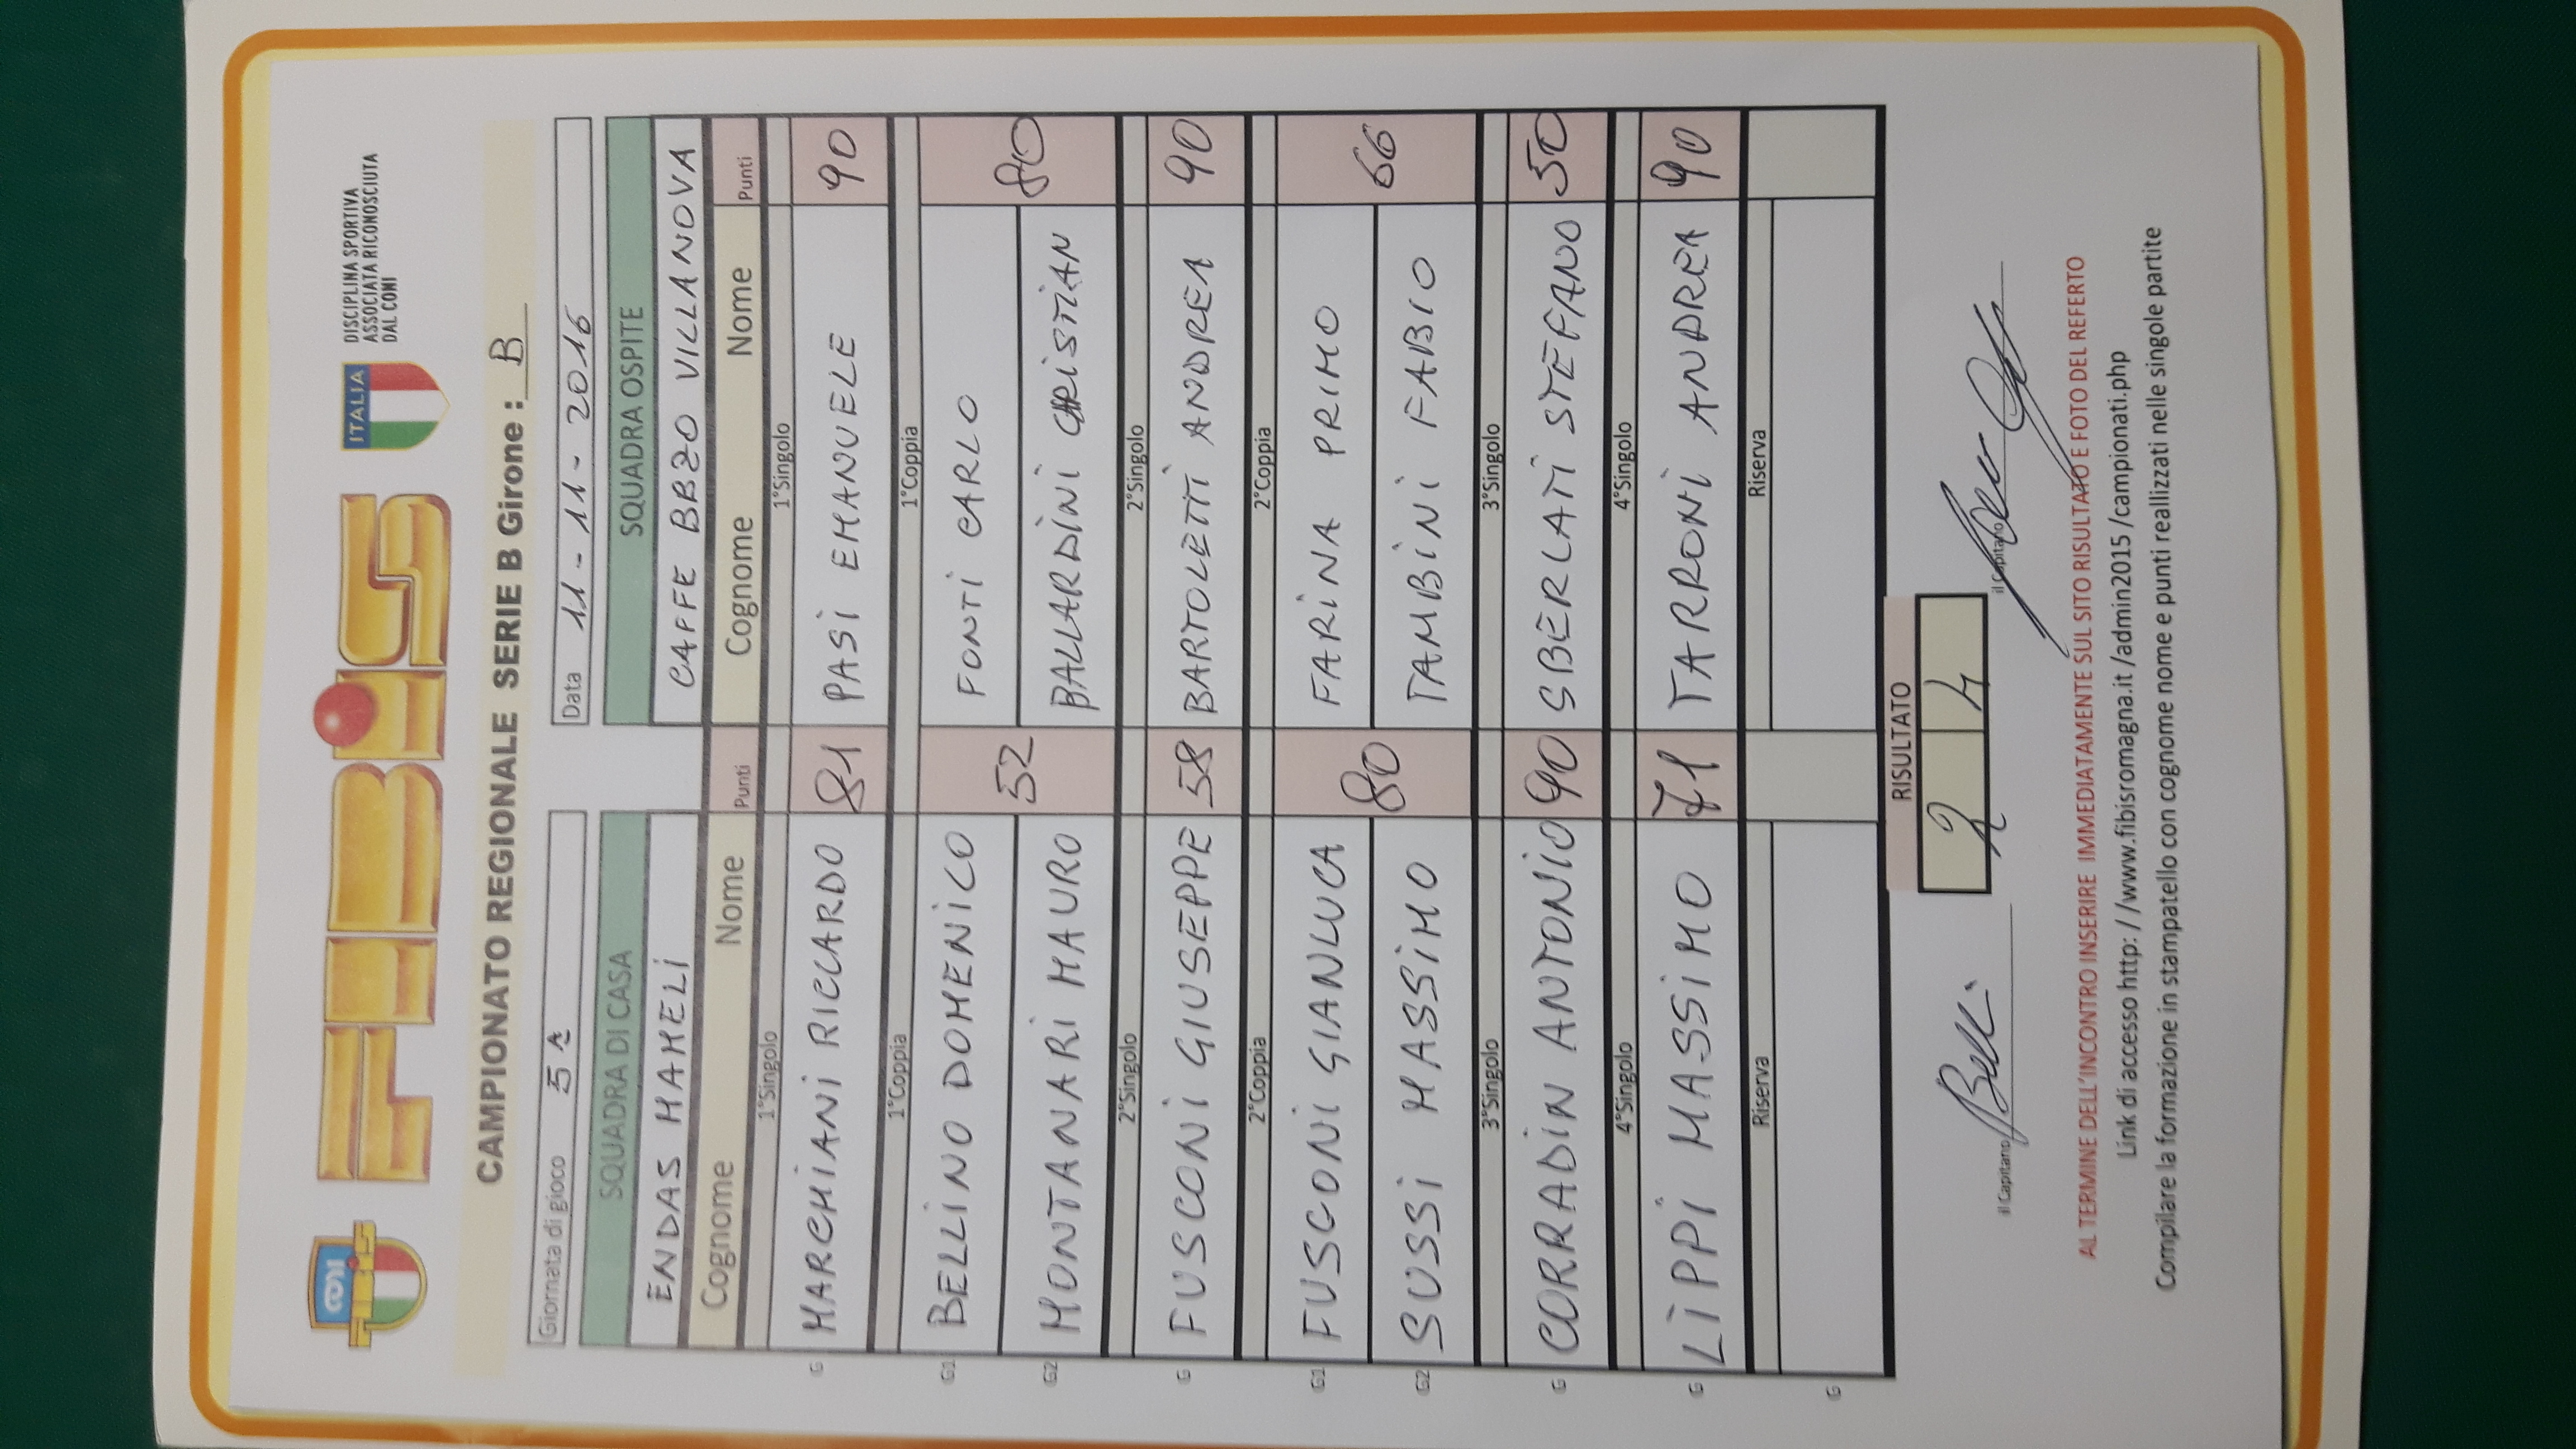 CONI
FIBIS
FIBIS
ITALIA
DISCIPLINA SPORTIVA
ASSOCIATA RICONOSCIUTA
DAL CONI
CAMPIONATO REGIONALE SERIE B Girone : B
Giornata di gioco 5ª Data 11-11-2016
SQUADRA DI CASA SQUADRA OSPITE
ENDAS MAMELI CAFFE BBZO VILLANOVA
Cognome Nome Punti Cognome Nome Punti
1°Singolo 1°Singolo
G MARCHIANI RICCARDO 81 PASI EMANUELE 90
1°Coppia 1°Coppia
G1 BELLINO DOMENICO FONTI CARLO
52 80
G2 MONTANARI MAURO BALLARDINI CRISTIAN
2°Singolo 2°Singolo
G FUSCONI GIUSEPPE 58 BARTOLETTI ANDREA 90
2°Coppia 2°Coppia
G1 FUSCONI GIANLUCA FARINA PRIMO
80 66
G2 SUSSI MASSIMO TAMBINI FABIO
3°Singolo 3°Singolo
G CORRADIN ANTONIO 90 SBERLATI STEFANO 50
4°Singolo 4°Singolo
G LIPPI MASSIMO 71 TARRONI ANDREA 90
Riserva Riserva
G
RISULTATO
2 4
il Capitano il Capitano
AL TERMINE DELL'INCONTRO INSERIRE IMMEDIATAMENTE SUL SITO RISULTATO E FOTO DEL REFERTO
Link di accesso http: / /www.fibisromagna.it /admin2015 /campionati.php
Compilare la formazione in stampatello con cognome nome e punti reallizzati nelle singole partite